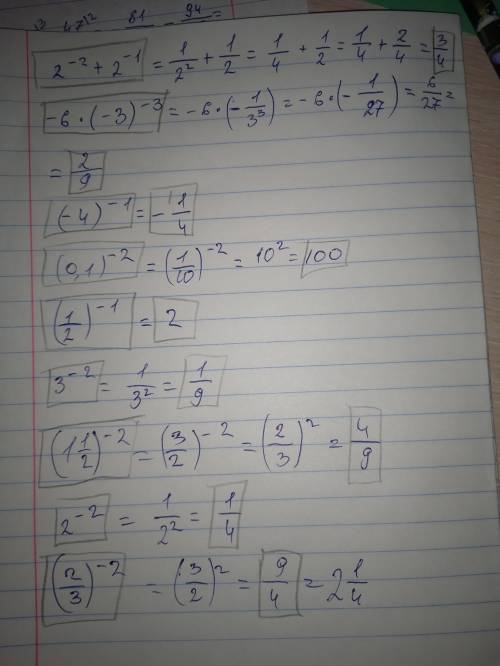 2⁻² + 2⁻¹ = 1/2² + 1/2 = 1/4 + 1/2 = 1/4 + 2/4 = 3/4
-6 · (-3)⁻³ = -6 · (- 1/3³) = -6 · (- 1/27) = 6/27 =
= 2/9
(-4)⁻¹ = - 1/4
(0,1)⁻² = (1/10)⁻² = 10² = 100
(1/2)⁻¹ = 2
3⁻² = 1/3² = 1/9
(1 1/2)⁻² = (3/2)⁻² = (2/3)² = 4/9
2⁻² = 1/2² = 1/4
(2/3)⁻² = (3/2)² = 9/4 = 2 1/4